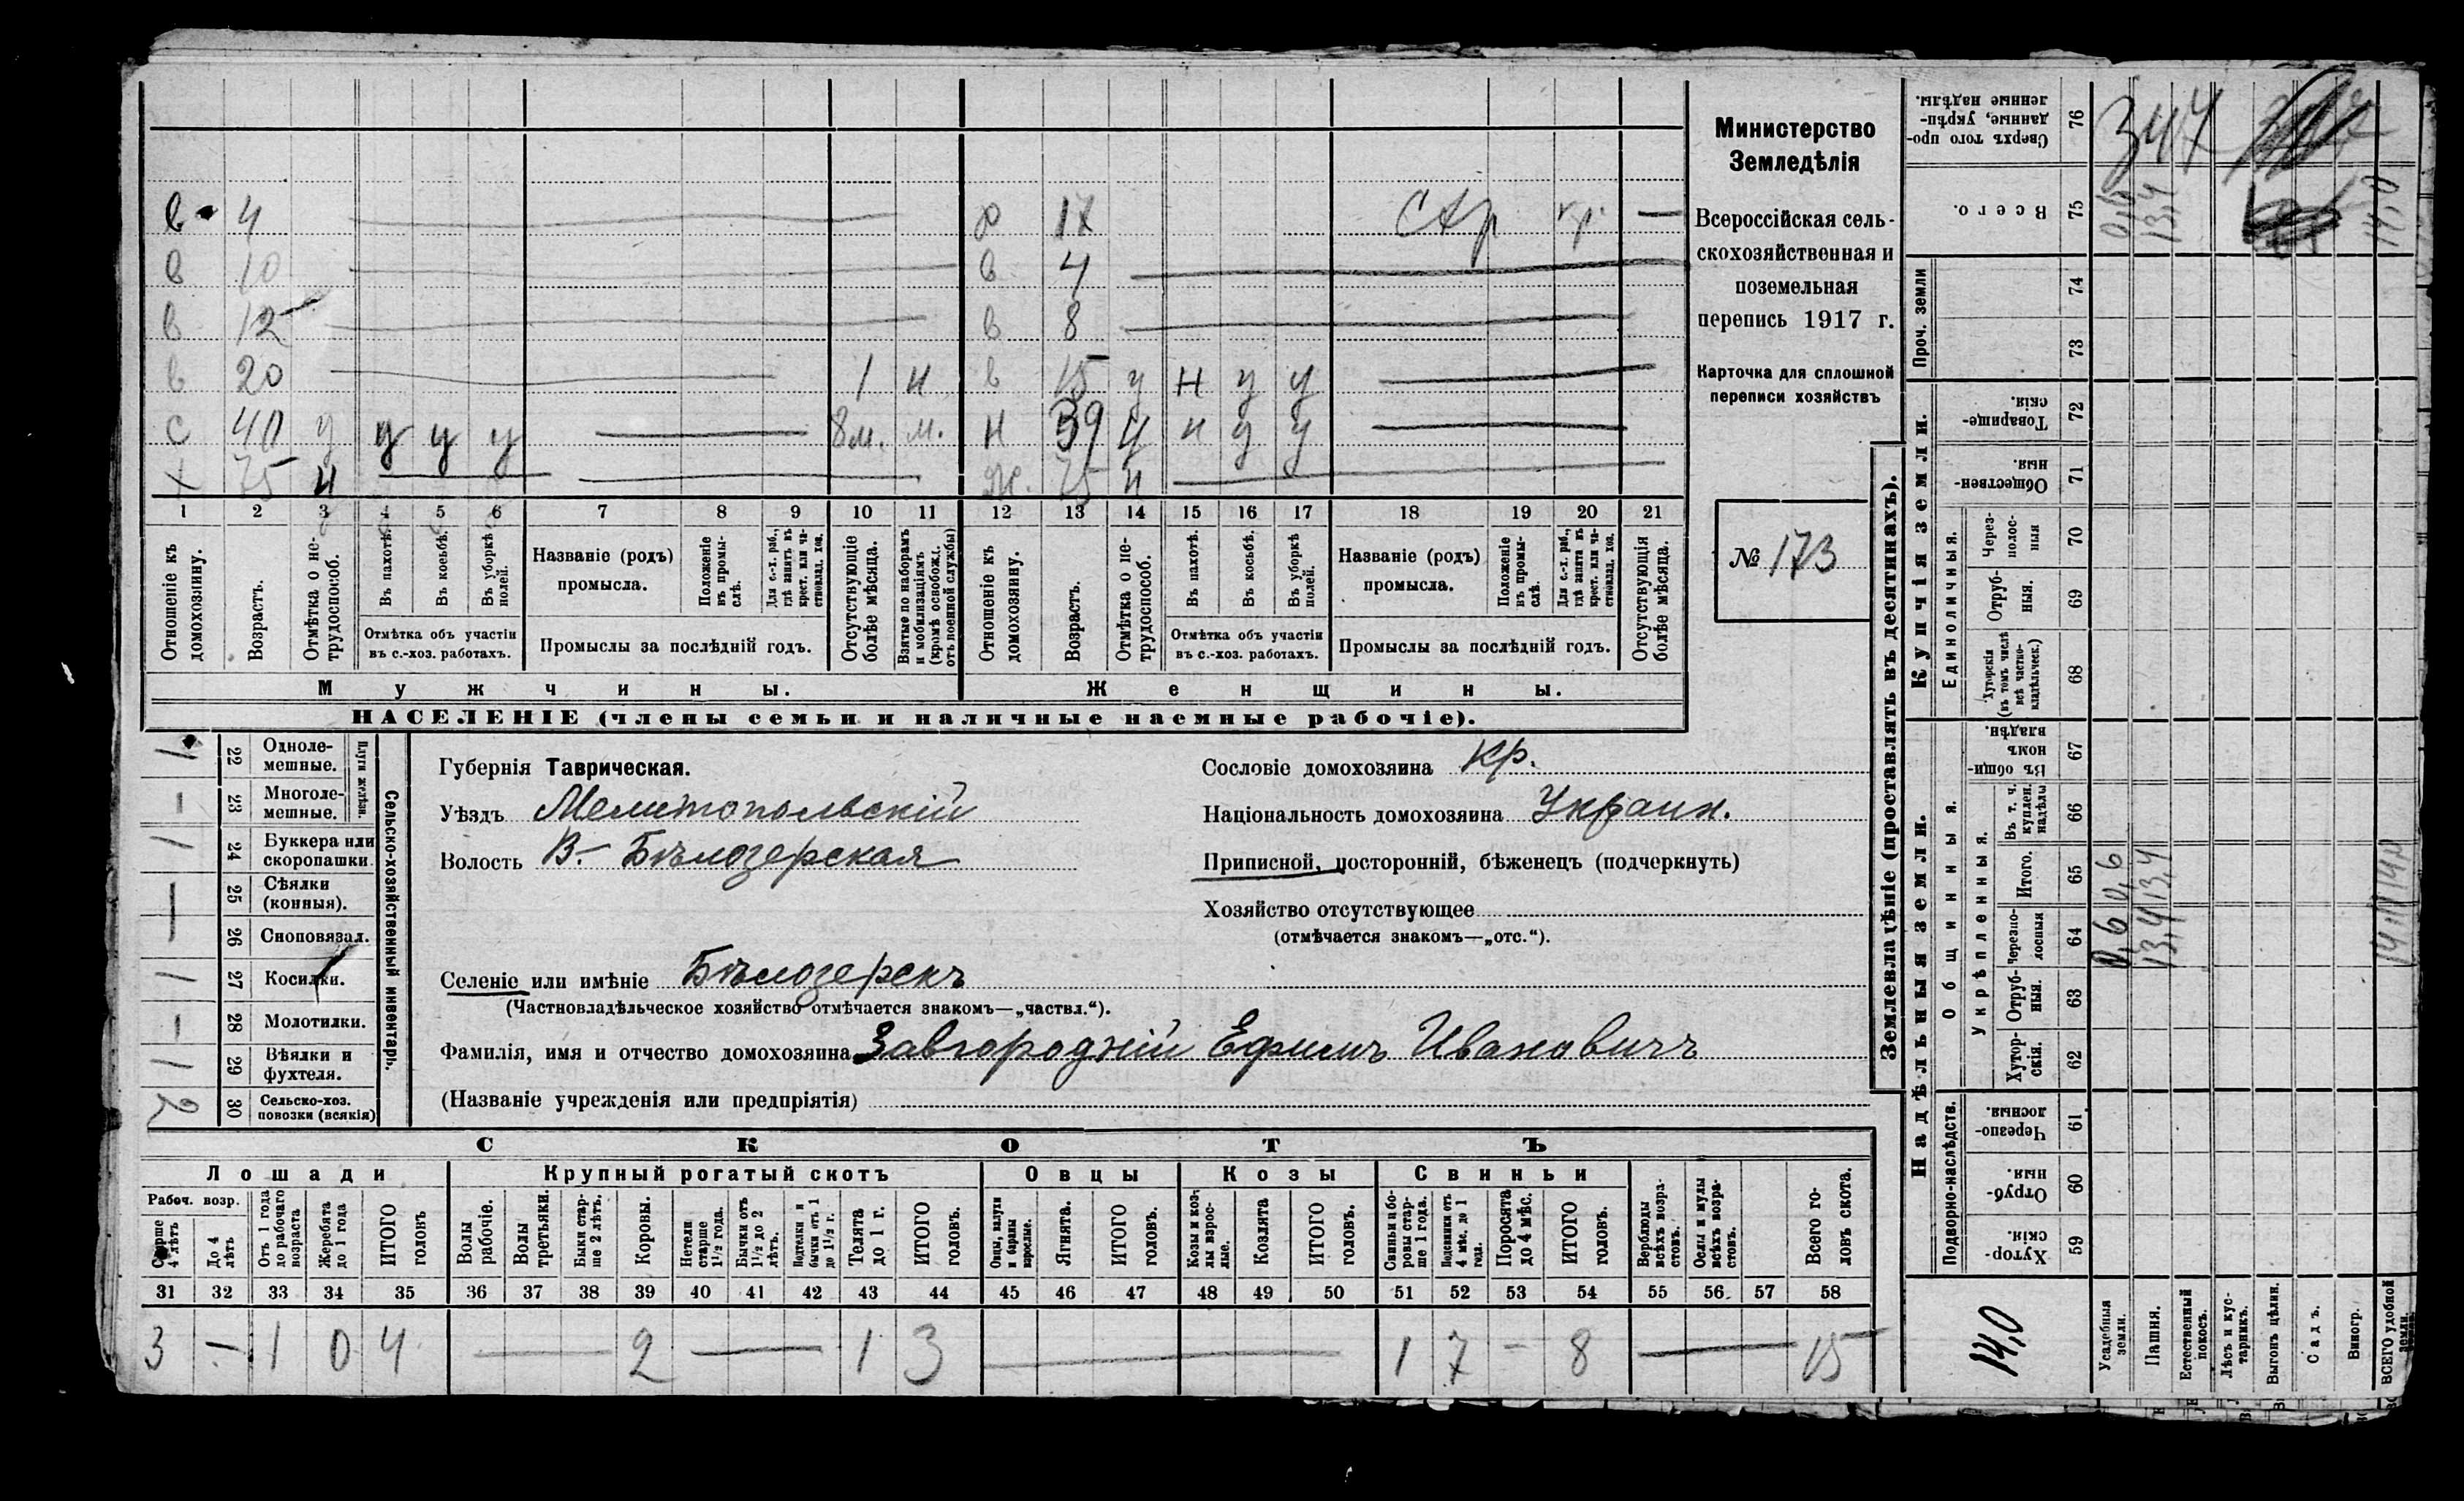 в 4 р 1/2 Стр кр. —
в 10 в 4
в 12 в 8
в 20 1 н в 15 у н у у
с 40 у у у у 8 м. м. н 39 у н у у
х 75 н ж. 75 н
1 2 3 4 5 6 7 8 9 10 11 12 13 14 15 16 17 18 19 20 21
Отношеніе къ домохозяину.
Возрастъ.
Отмѣтка о не-
трудоспособ.
Въ пахотѣ.
Въ косьбѣ.
Въ уборкѣ
полей.
Отмѣтка объ участіи
въ с.-хоз. работахъ.
Названіе (родъ)
промысла.
Положеніе
въ промы-
слѣ.
Для с.-х. раб.,
гдѣ занятъ въ
крест. или ча-
стновлад. хоз.
Промыслы за послѣдній годъ.
Отсутствующіе
болѣе мѣсяца.
Взятые по наборамъ
и мобилизаціямъ
(кромѣ освобожд.
отъ военной службы)
Отношеніе къ
домохозяину.
Возрастъ.
Отмѣтка о не-
трудоспособ.
Въ пахотѣ.
Въ косьбѣ.
Въ уборкѣ
полей.
Отмѣтка объ участіи
въ с.-хоз. работахъ.
Названіе (родъ)
промысла.
Положеніе
въ промы-
слѣ.
Для с.-х. раб.,
гдѣ занята въ
крест. или ча-
стновлад. хоз.
Промыслы за послѣдній годъ.
Отсутствующія
болѣе мѣсяца.
Мужчины.
Женщины.
НАСЕЛЕНІЕ (члены семьи и наличные наемные рабочіе).
Министерство
Земледѣлія
Всероссійская сель-
скохозяйственная и
поземельная
перепись 1917 г.
Карточка для сплошной
переписи хозяйствъ
№ 173
Сельско-хозяйственный инвентарь.
Плуги желѣзн.
1 22 Одноле-
мешные.
— 23 Многоле-
мешные.
1 24 Буккера или
скоропашки.
— 25 Сѣялки
(конныя).
— 26 Сноповязал.
1 27 Косилки.
— 28 Молотилки.
1 29 Вѣялки и
фухтеля.
2 30 Сельско-хоз.
повозки (всякія)
Губернія Таврическая.
Уѣздъ Мелитопольскій
Волость В.- Бѣлозерская
Селеніе или имѣніе Бѣлозерскъ
(Частновладѣльческое хозяйство отмѣчается знакомъ—„частвл.“).
Фамилія, имя и отчество домохозяина Завгородній Ефимъ Ивановичъ
(Названіе учрежденія или предпріятія)
Сословіе домохозяина кр.
Національность домохозяина Украин.
Приписной, посторонній, бѣженецъ (подчеркнуть)
Хозяйство отсутствующее
(отмѣчается знакомъ—„отс.“).
СКОТЪ
Лошади
Крупный рогатый скотъ
Овцы
Козы
Свиньи
Рабоч. возр.
Старше
4 лѣтъ
До 4
лѣтъ
Отъ 1 года
до рабочаго
возраста
Жеребята
до 1 года
ИТОГО
головъ
Волы
рабочіе.
Волы
третьяки.
Быки стар-
ше 2 лѣтъ.
Коровы.
Нетели
старше
1½ года.
Бычки отъ
1½ до 2
лѣтъ.
Подтелки и
бычки отъ 1
до 1½ г.
Телята
до 1 г.
ИТОГО
головъ.
Овцы, валухи
и бараны
взрослые.
Ягнята.
ИТОГО
головъ.
Козы и коз-
лы взрос-
лые.
Козлята
ИТОГО
головъ.
Свиньи и бо-
ровы стар-
ше 1 года.
Подсвинки отъ
4 мѣс. до 1
года.
Поросята
до 4 мѣс.
ИТОГО
головъ.
Верблюды
всѣхъ возра-
стовъ.
Ослы и мулы
всѣхъ возра-
стовъ.
Всего го-
ловъ скота.
31 32 33 34 35 36 37 38 39 40 41 42 43 44 45 46 47 48 49 50 51 52 53 54 55 56 57 58
3 — 1 0 4 — 2 — 1 3 — 1 7 — 8 — 15
Землевладѣніе (проставлять въ десятинахъ).
Надѣльныя земли.
Купчія земли.
Проч. земли
Подворно-наслѣдств.
Общинныя.
Укрѣпленныя.
Единоличныя.
Хутор-
скія. 59
Отруб-
ныя. 60
Черезпо-
лосныя. 61
Хутор-
скія. 62
Отруб-
ныя. 63
Черезпо-
лосныя 64
Итого. 65
Въ т. ч.
куплен.
надѣлы 66
Въ общи-
номъ
владѣн. 67
Хуторскія
(въ томъ числѣ
всѣ частно-
владѣльческ.) 68
Отруб-
ныя. 69
Через-
полос-
ныя 70
Обществен-
ныя. 71
Товарище-
скія. 72
73
74
Всего. 75
Сверхъ того про-
данные, укрѣп-
ленные надѣлы. 76
14,0
Усадебныя
земли. 0,6 0,6 0,6
Пашня. 13,4 13,4 13,4
Естественный
покосъ.
Лѣсъ и кус-
тарникъ.
Выгонъ цѣлин.
Садъ.
Виногр.
ВСЕГО удобной
земли. 14,0 14,0 14,0
347